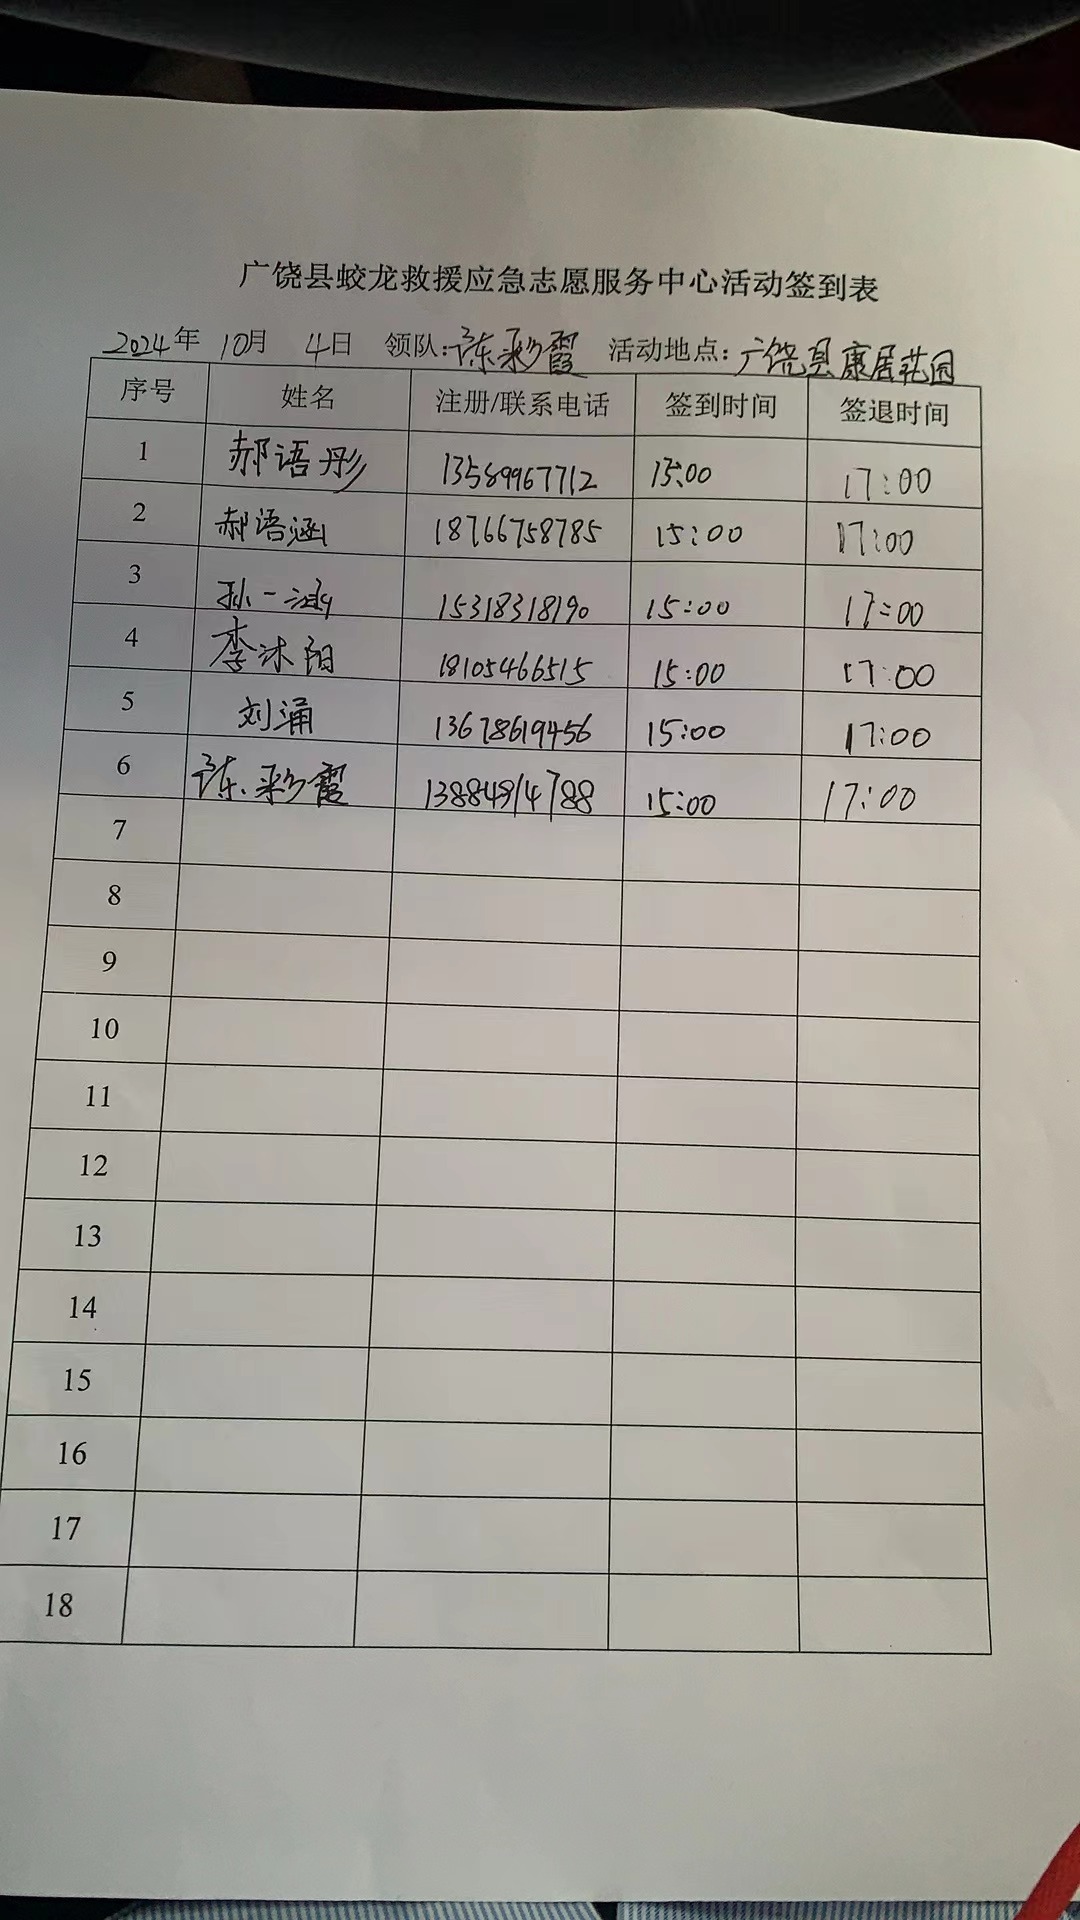 广饶县蛟龙救援应急志愿服务中心活动签到表
2024年 10月 4日 领队:陈彩霞 活动地点:广饶县康居花园
序号 姓名 注册/联系电话 签到时间 签退时间
1 郝语彤 13589967712 15:00 17:00
2 郝语涵 18766758785 15:00 17:00
3 孙一涵 15318318190 15:00 17:00
4 李沐阳 18105466515 15:00 17:00
5 刘涌 13678619456 15:00 17:00
6 陈彩霞 13884914788 15:00 17:00
7
8
9
10
11
12
13
14
15
16
17
18